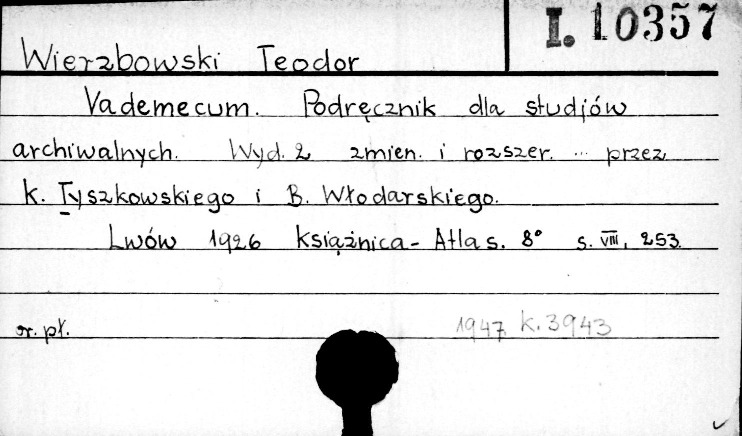 I. 10357
Wierzbowski Teodor
Vademecum. Podręcznik dla studjów
archiwalnych. Wyd. 2 zmien. i rozszer. ... przez
K. Tyszkowskiego i B. Włodarskiego.
Lwów 1926 Książnica-Atlas. 8° s. VIII, 253.
or. pł.
1947 k. 3943